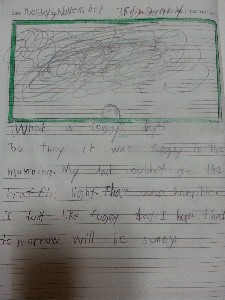 Tuesday November
What a foggy day!
To day it was foggy in the
morning. My dad couldn't see the
traffic light that was
I not like foggy day I hope that
tomorrow will be sunny